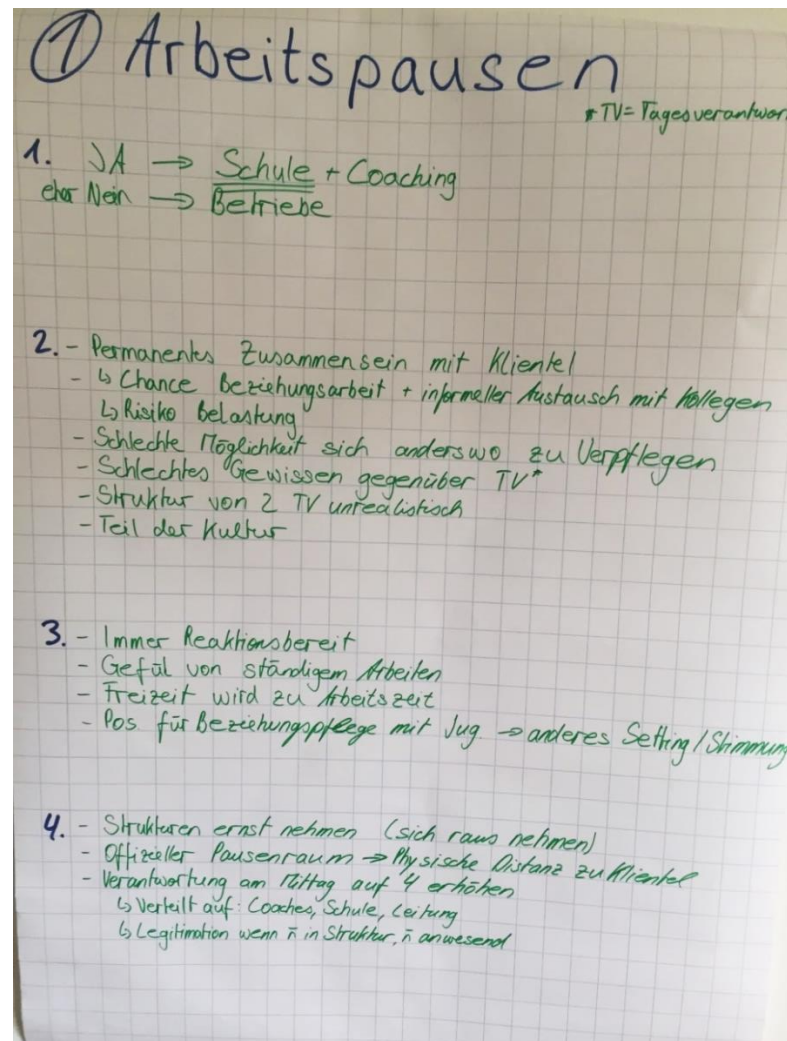 ① Arbeitspausen
* TV = Tagesverantwor
1. JA → Schule + Coaching
eher Nein → Betriebe
2. - Permanentes Zusammensein mit Klientel
- ↳ Chance Beziehungsarbeit + informeller Austausch mit Kollegen
↳ Risiko Belastung
- Schlechte Möglichkeit sich anderswo zu Verpflegen
- Schlechtes Gewissen gegenüber TV*
- Struktur von 2 TV unrealistisch
- Teil der Kultur
3. - Immer Reaktionsbereit
- Gefül von ständigem Arbeiten
- Freizeit wird zu Arbeitszeit
- Pos. für Beziehungspflege mit Jug. → anderes Setting / Stimmung
4. - Strukturen ernst nehmen (sich raus nehmen)
- Offizieller Pausenraum → Physische Distanz zu Klientel
- Verantwortung am Mittag auf 4 erhöhen
↳ Verteilt auf: Coaches, Schule, Leitung
↳ Legitimation wenn n̄ in Struktur, n̄ anwesend